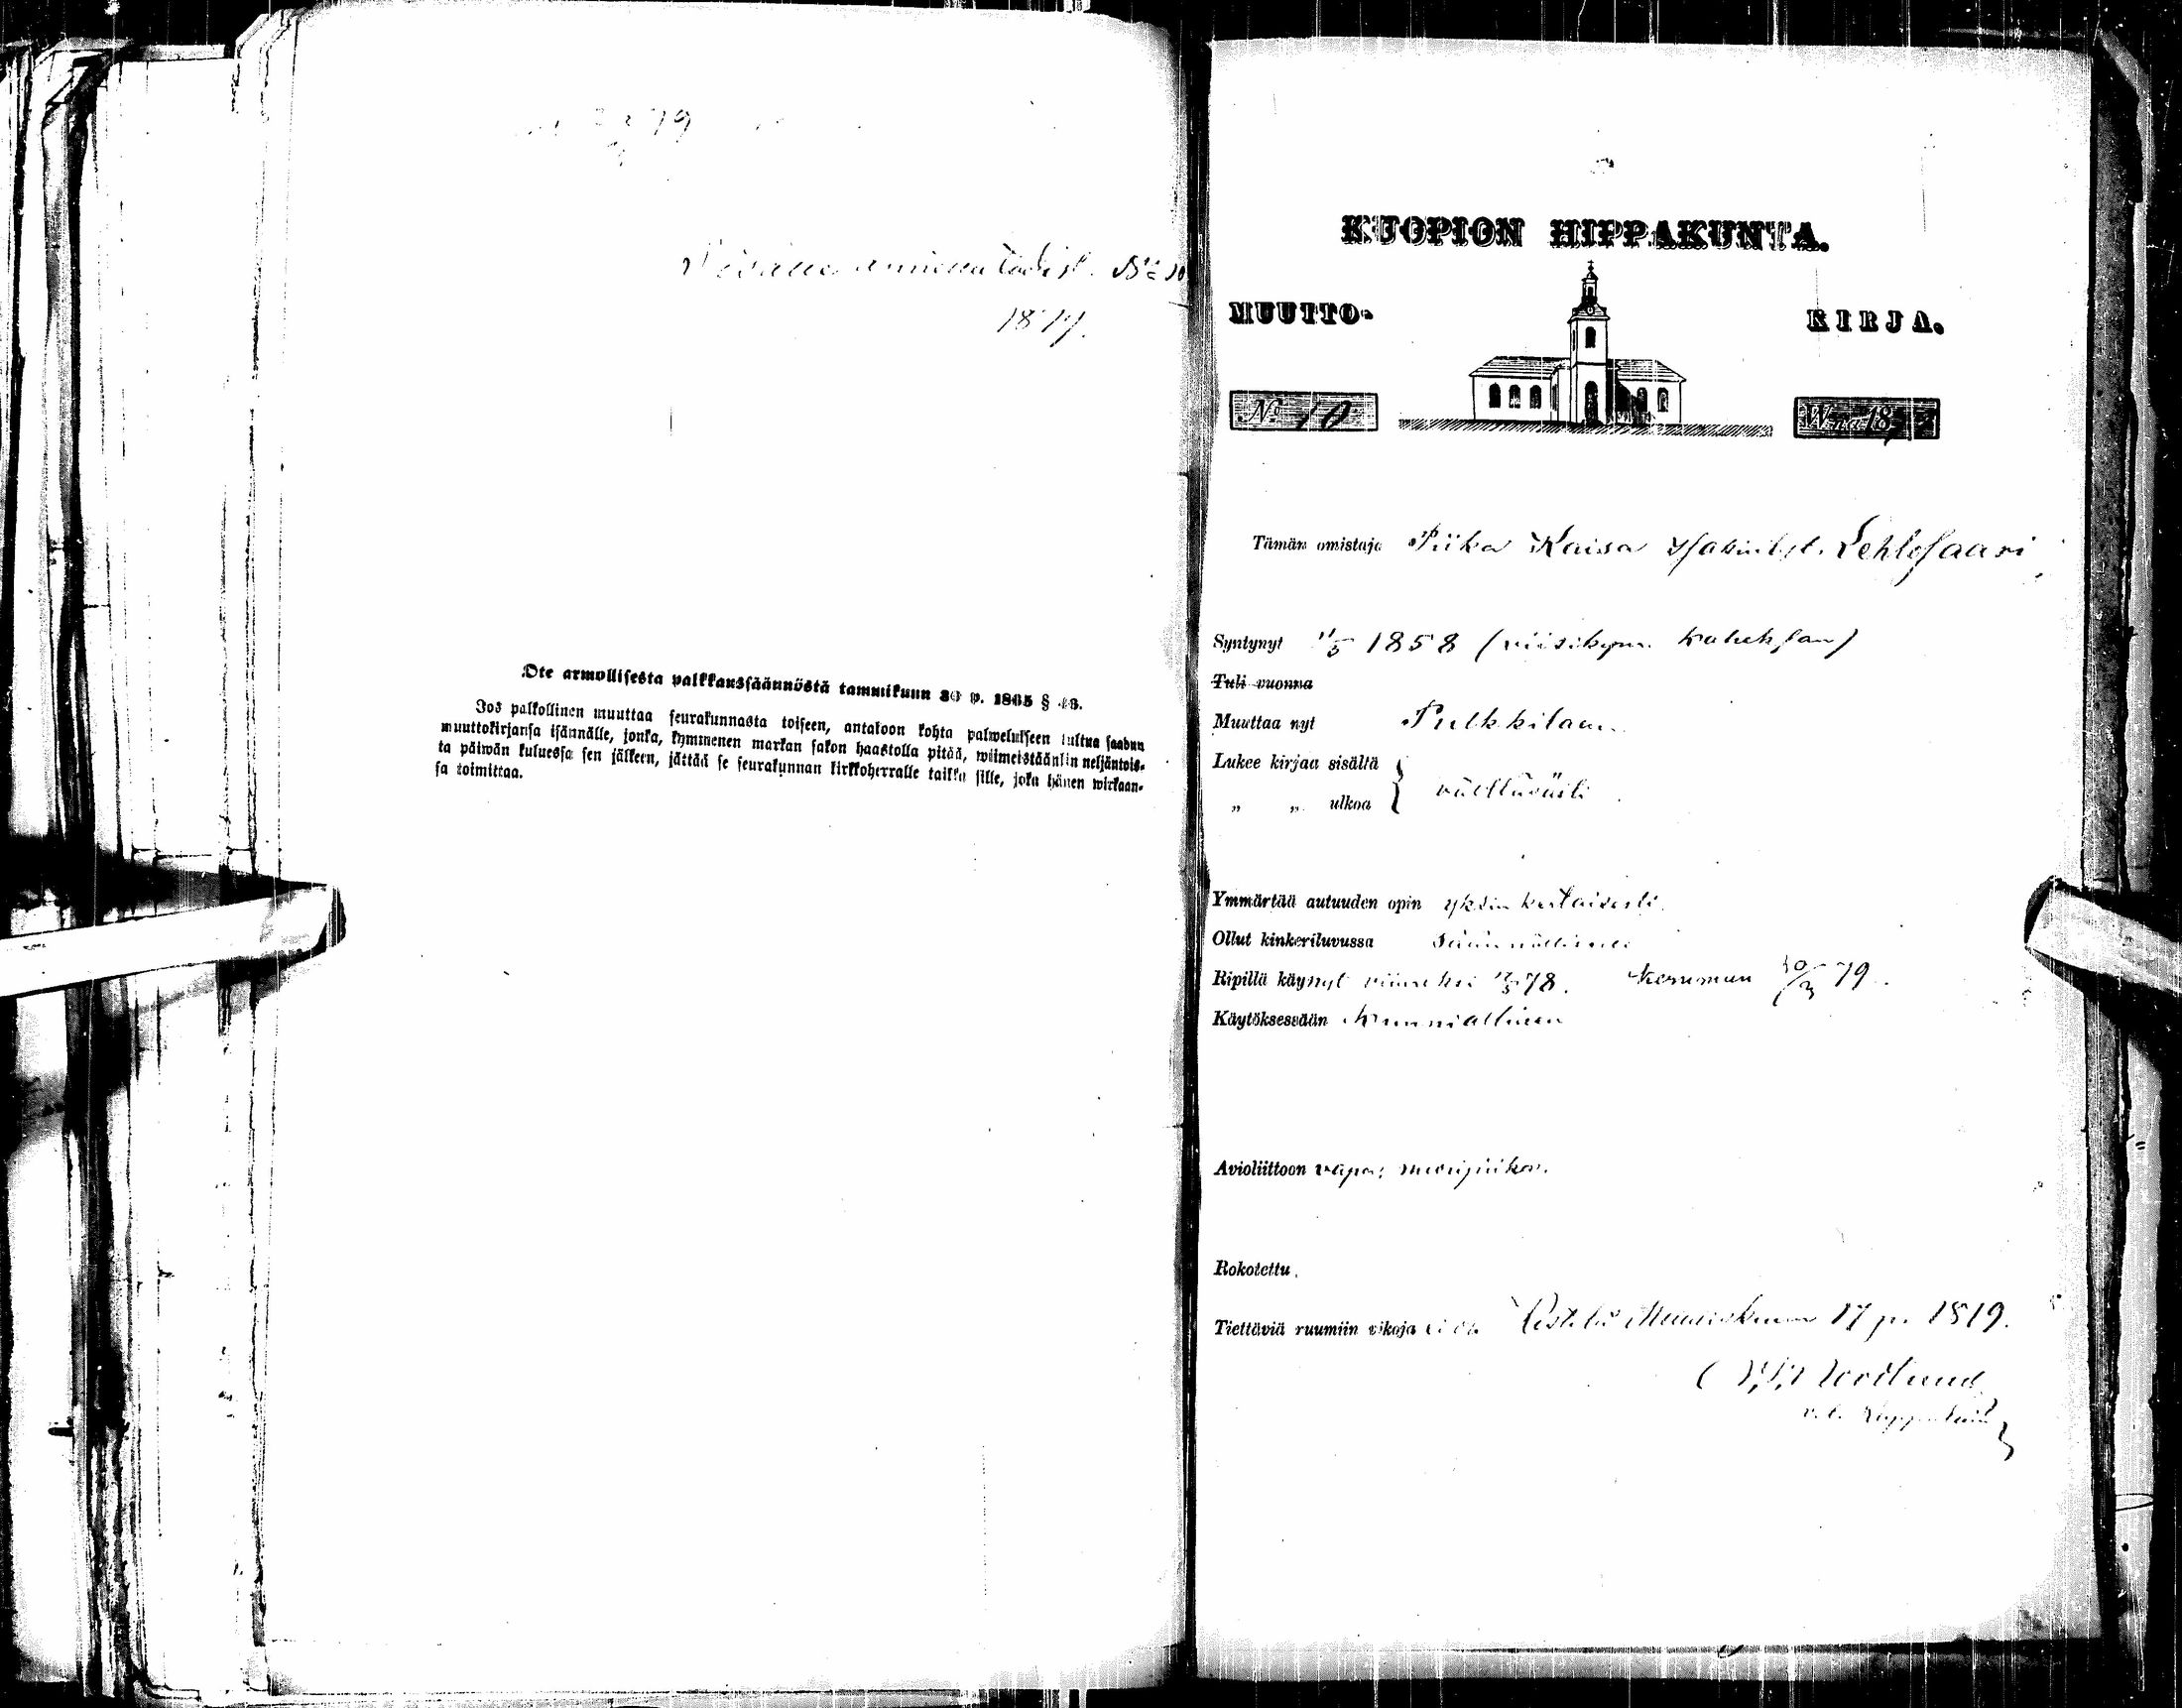 79
N:o 10
Ote armollisesta palkkaussäännöstä tammikuun 30 p. 1865 § 43.
Jos palkollinen muuttaa seurakunnasta toiseen, antakoon kohta palwelukseen tultua saadun
muuttokirjansa isännälle, jonka, kymmenen markan sakon haastolla pitää, wiimeistäänkin neljäntois-
ta päiwän kuluessa sen jälkeen, jättää se seurakunnan kirkkoherralle taikka sille, joka hänen wirkaan-
sa toimittaa.
KUOPION HIPPAKUNTA.
MUUTTO- KIRJA.
No 10 W:na 18
Tämän omistaja Piika Kaisa Lehtosaari
Syntynyt 11/5 1858 (viisikym. kaheksan)
Tuli vuonna
Muuttaa nyt Pulkkilaan.
Lukee kirjaa sisältä
„ „ ulkoa } välttävästi
Ymmärtää autuuden opin yksinkertaisesti.
Ollut kinkeriluvussa säännöllisesti
Ripillä käynyt viimeksi 78. 30/3 79.
Käytöksessään kunniallinen
Avioliittoon vapaa;
Rokotettu.
Tiettäviä ruumiin vikoja ei ole Maaliskuun 17 p. 1879.
v.t. Kappalainen